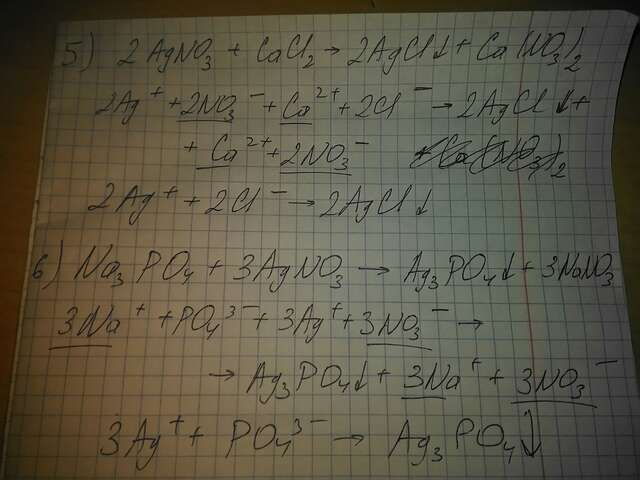 5) 2AgNO₃ + CaCl₂ → 2AgCl↓ + Ca(NO₃)₂
2Ag⁺ + 2NO₃⁻ + Ca²⁺ + 2Cl⁻ → 2AgCl↓ +
+ Ca²⁺ + 2NO₃⁻
2Ag⁺ + 2Cl⁻ → 2AgCl↓
6) Na₃PO₄ + 3AgNO₃ → Ag₃PO₄↓ + 3NaNO₃
3Na⁺ + PO₄³⁻ + 3Ag⁺ + 3NO₃⁻ →
→ Ag₃PO₄↓ + 3Na⁺ + 3NO₃⁻
3Ag⁺ + PO₄³⁻ → Ag₃PO₄↓